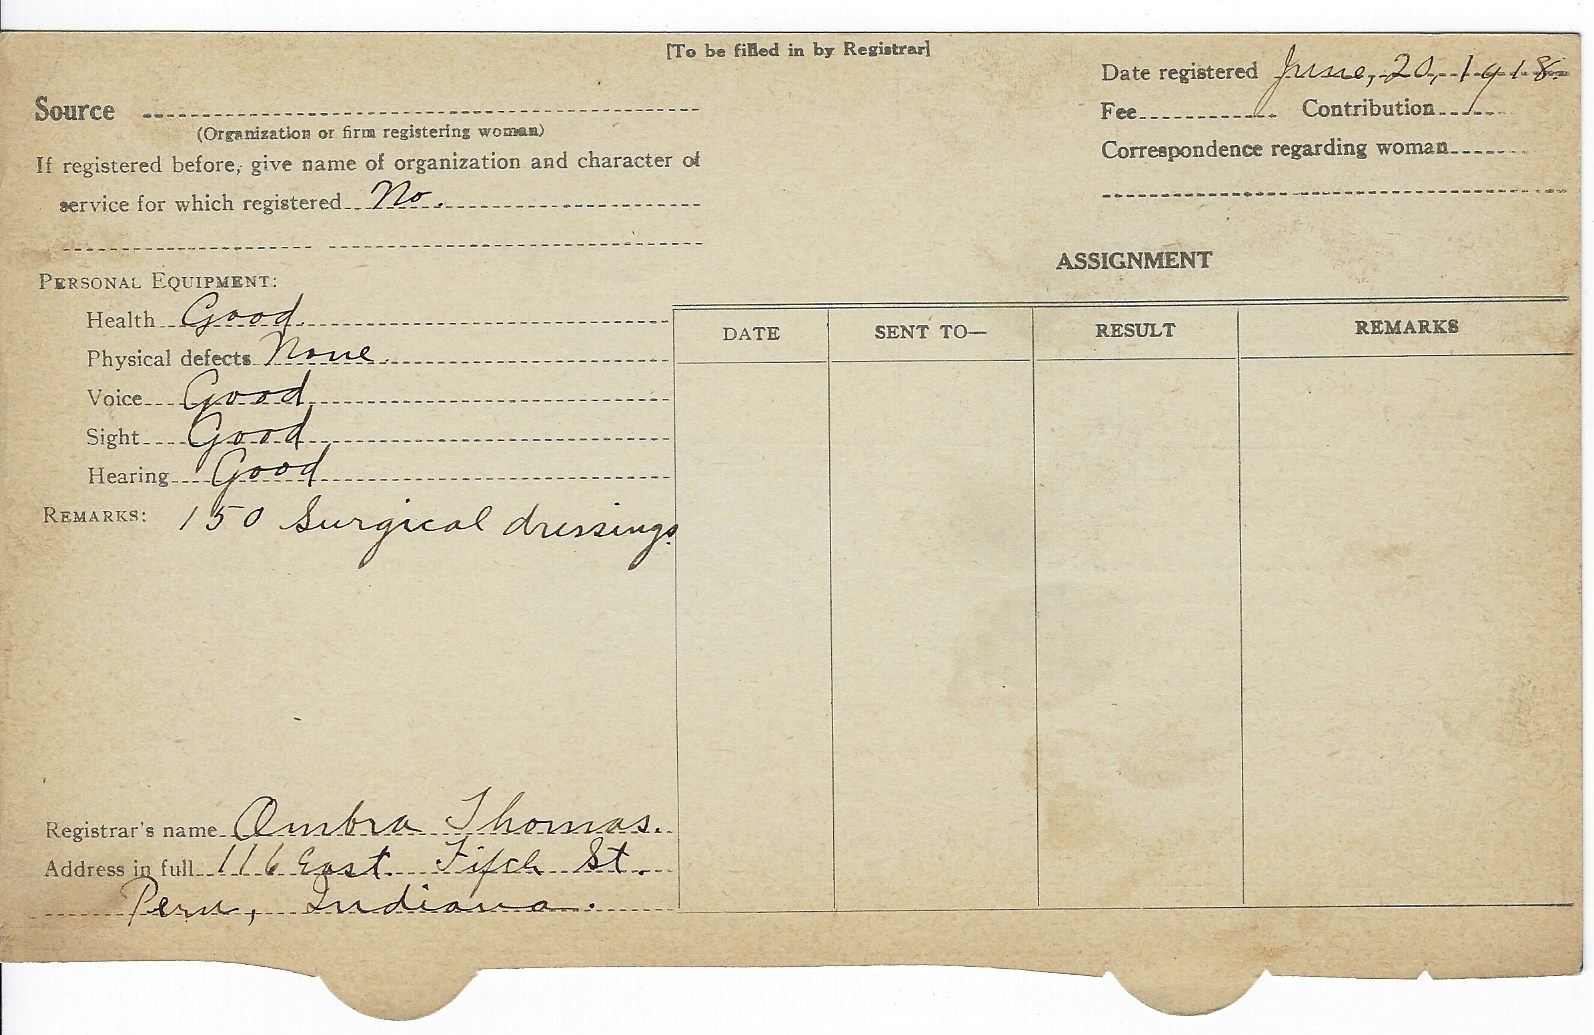 [To be filled in by Registrar]
Date registered June, 20, 1918.
Source
(Organization or firm registering woman)
Fee Contribution
If registered before, give name of organization and character of
Correspondence regarding woman
service for which registered No.
ASSIGNMENT
PERSONAL EQUIPMENT:
Health Good.
DATE SENT TO— RESULT REMARKS
Physical defects None.
Voice Good
Sight Good
Hearing Good
REMARKS: 150 Surgical dressings.
Registrar's name Ombra Thomas.
Address in full 116 East Fifth St.
Peru, Indiana.